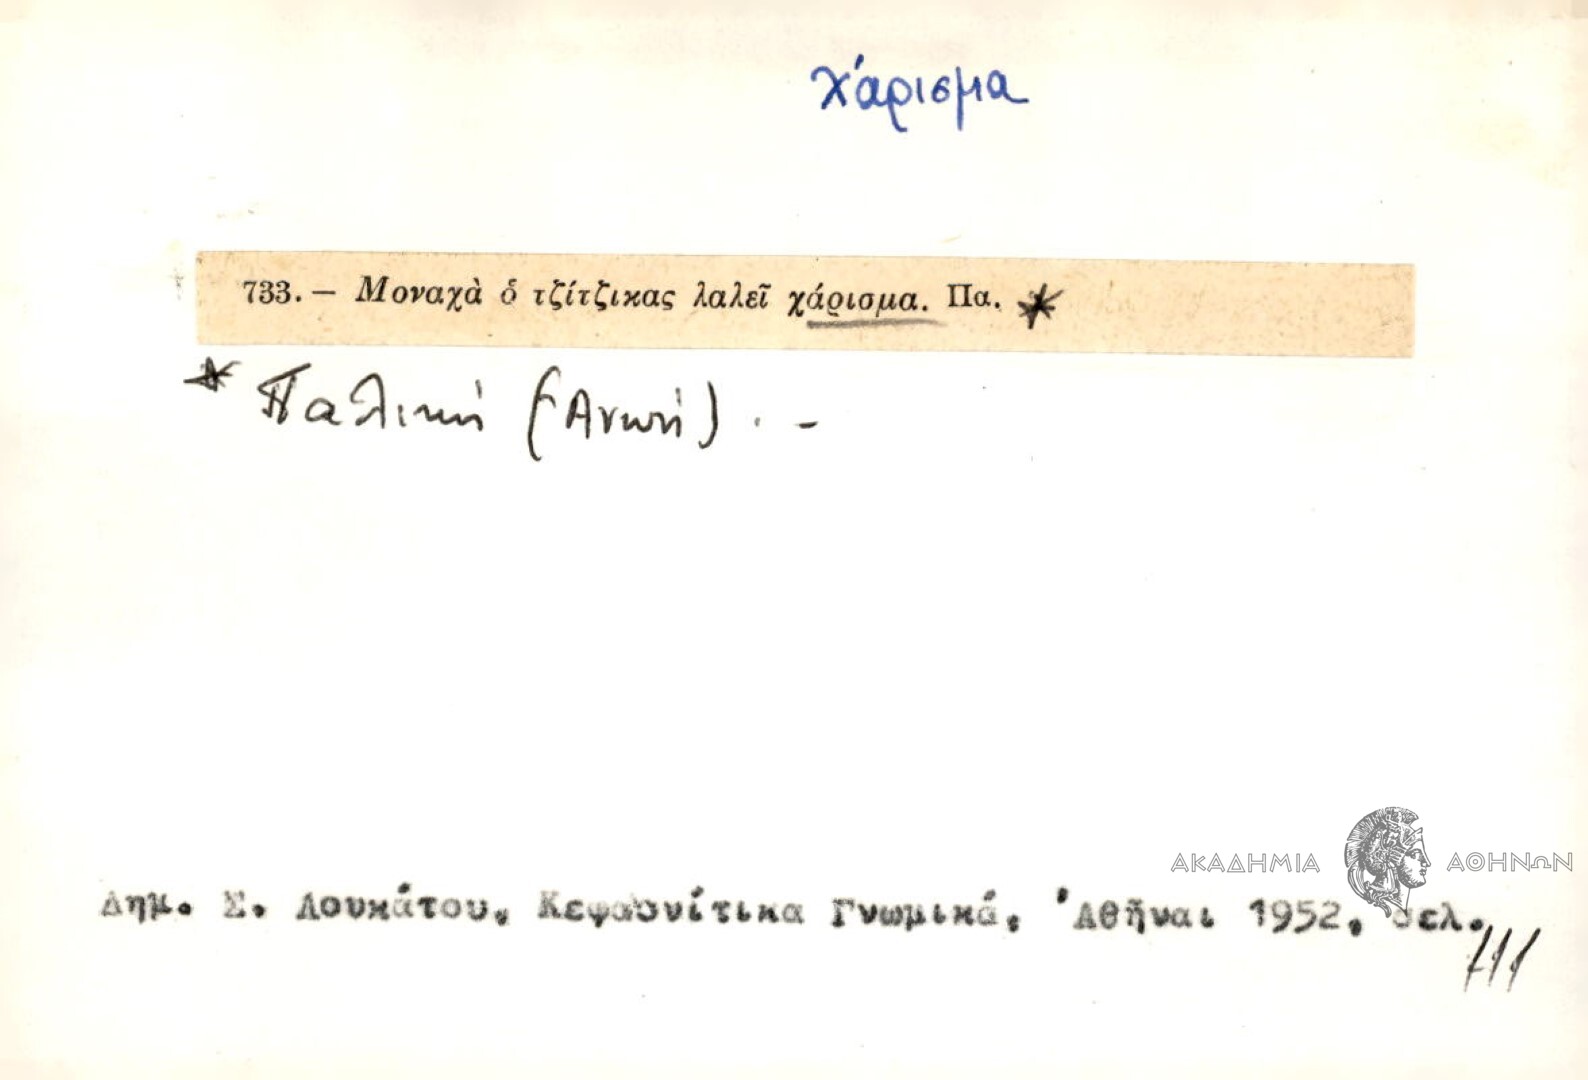 χάρισμα
733. — Μοναχὰ ὁ τζίτζικας λαλεῖ χάρισμα. Πα. *
* Παλική (Ἀνωή) . –
ΑΚΑΔΗΜΙΑ ΑΘΗΝΩΝ
Δημ. Σ. Λουκάτου, Κεφαλονίτικα Γνωμικά, Ἀθῆναι 1952, σελ.
111